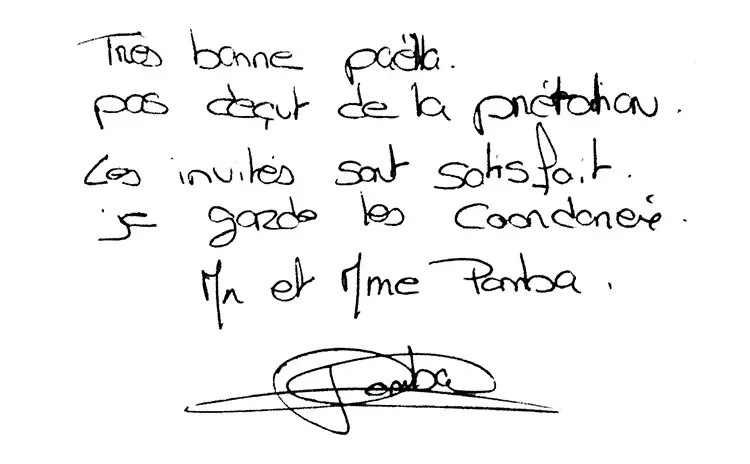 Très bonne paëlla.
pas deçut de la prétation.
Les invités sont satisfait.
je garde les Coordoneé.
Mr et Mme Pamba.
Pamba